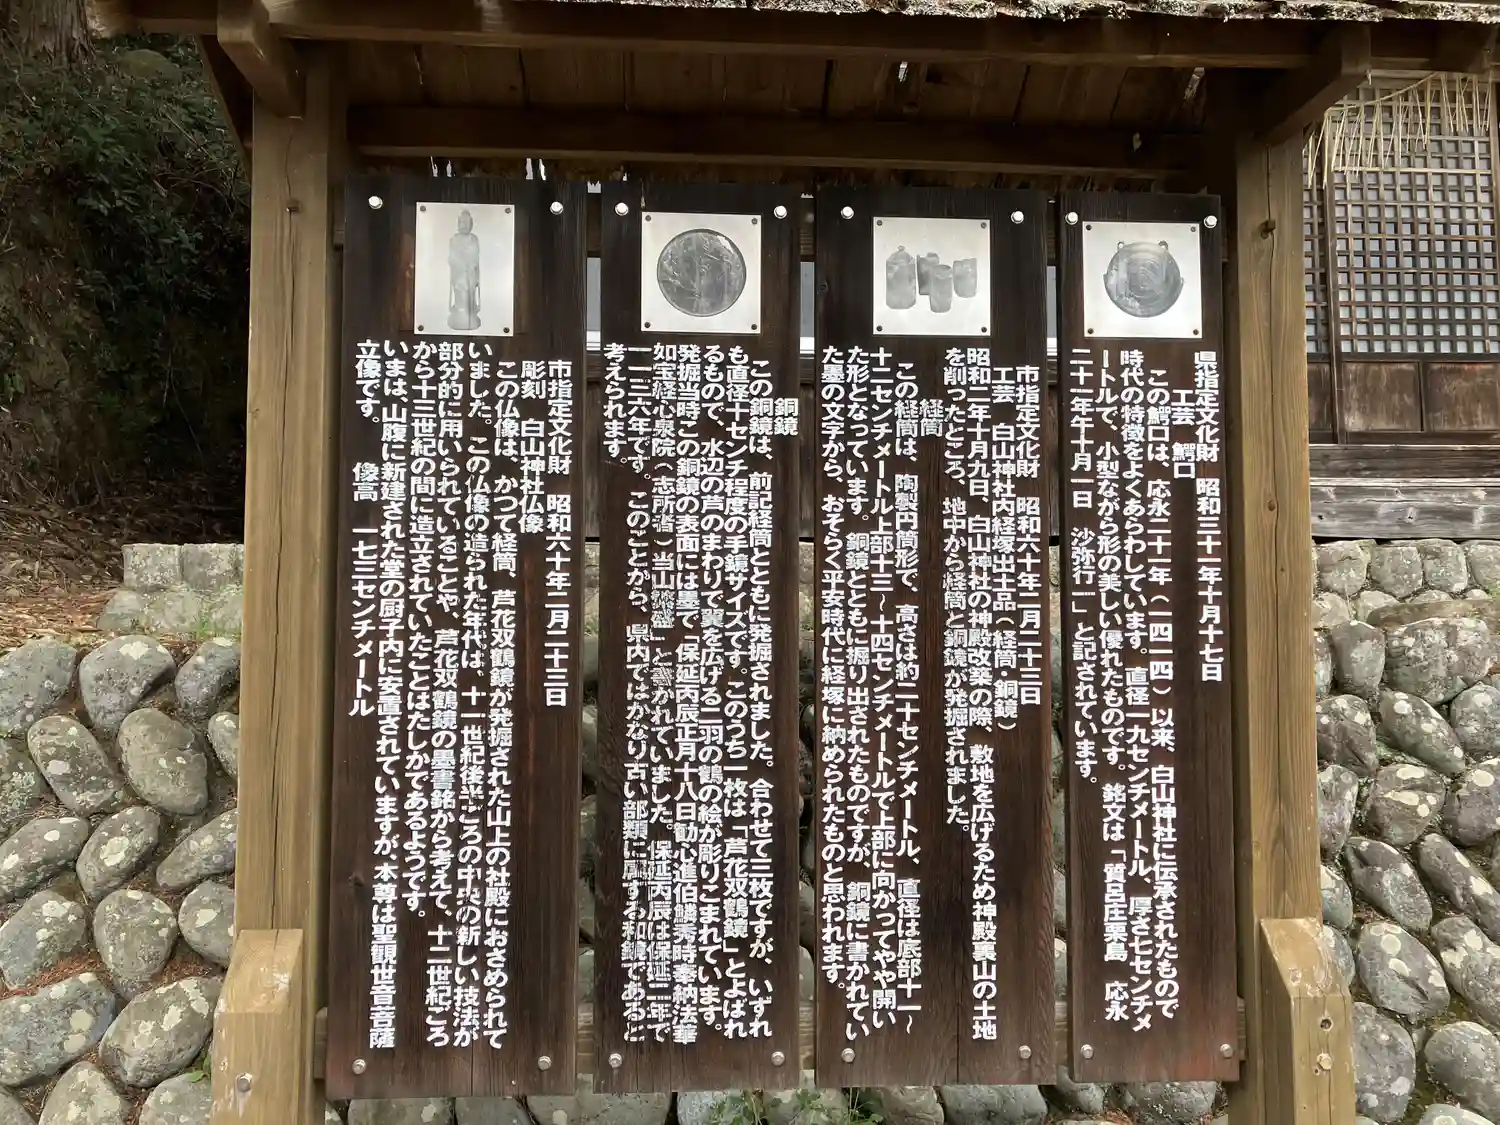 県指定文化財　昭和三十一年十月十七日
工芸　鰐口
この鰐口は、応永二十一年（一四一四）以来、白山神社に伝承されたもので
時代の特徴をよくあらわしています。直径一九センチメートル、厚さ七センチメ
ートルで、小型ながら形の美しい優れたものです。銘文は「質呂庄栗島　応永
二十一年十月一日　沙弥行一」と記されています。
市指定文化財　昭和六十年二月二十三日
工芸　白山神社内経塚出土品（経筒・銅鏡）
昭和二年十月九日、白山神社の神殿改築の際、敷地を広げるため神殿裏山の土地
を削ったところ、地中から経筒と銅鏡が発掘されました。
経筒
この経筒は、陶製円筒形で、高さは約二十センチメートル、直径は底部十一〜
十二センチメートル上部十三〜十四センチメートルで上部に向かってやや開い
た形となっています。銅鏡とともに掘り出されたものですが、銅鏡に書かれてい
た墨の文字から、おそらく平安時代に経塚に納められたものと思われます。
銅鏡
この銅鏡は、前記経筒とともに発掘されました。合わせて三枚ですが、いずれ
も直径十センチ程度の手鏡サイズです。このうち一枚は「芦花双鶴鏡」とよばれ
るもので、水辺の芦のまわりで翼を広げる二羽の鶴の絵が彫りこまれています。
発掘当時この銅鏡の表面には墨で「保延丙辰正月十八日勧心進伯鱗秀時奉納法華
如宝経心泉院（志所者）当山繁盛」と書かれていました。保延丙辰は保延二年で
一一三六年です。このことから、県内ではかなり古い部類に属する和鏡であると
考えられます。
市指定文化財　昭和六十年二月二十三日
彫刻　白山神社仏像
この仏像は、かつて経筒、芦花双鶴鏡が発掘された山上の社殿におさめられて
いました。この仏像の造られた年代は、十一世紀後半ごろの中央の新しい技法が
部分的に用いられていることや、芦花双鶴鏡の墨書銘から考えて、十二世紀ごろ
から十三世紀の間に造立されていたことはたしかであるようです。
いまは、山腹に新建された堂の厨子内に安置されていますが、本尊は聖観世音菩薩
立像です。　像高　一七三センチメートル